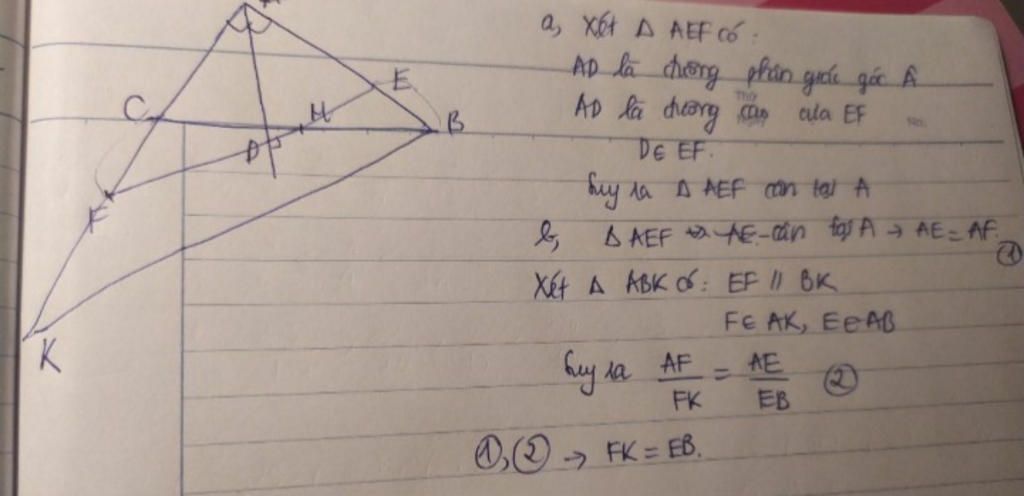 A
C
E
H
B
D
F
K
a, Xét Δ AEF có :
AD là đường phân giác góc Â
AD là đường cao của EF
D∈ EF.
Suy ra Δ AEF cân tại A
b, Δ AEF cân tại A → AE = AF. ①
Xét Δ ABK có: EF // BK
F∈ AK, E∈AB
Suy ra AF/FK = AE/EB ②
①,② → FK = EB.